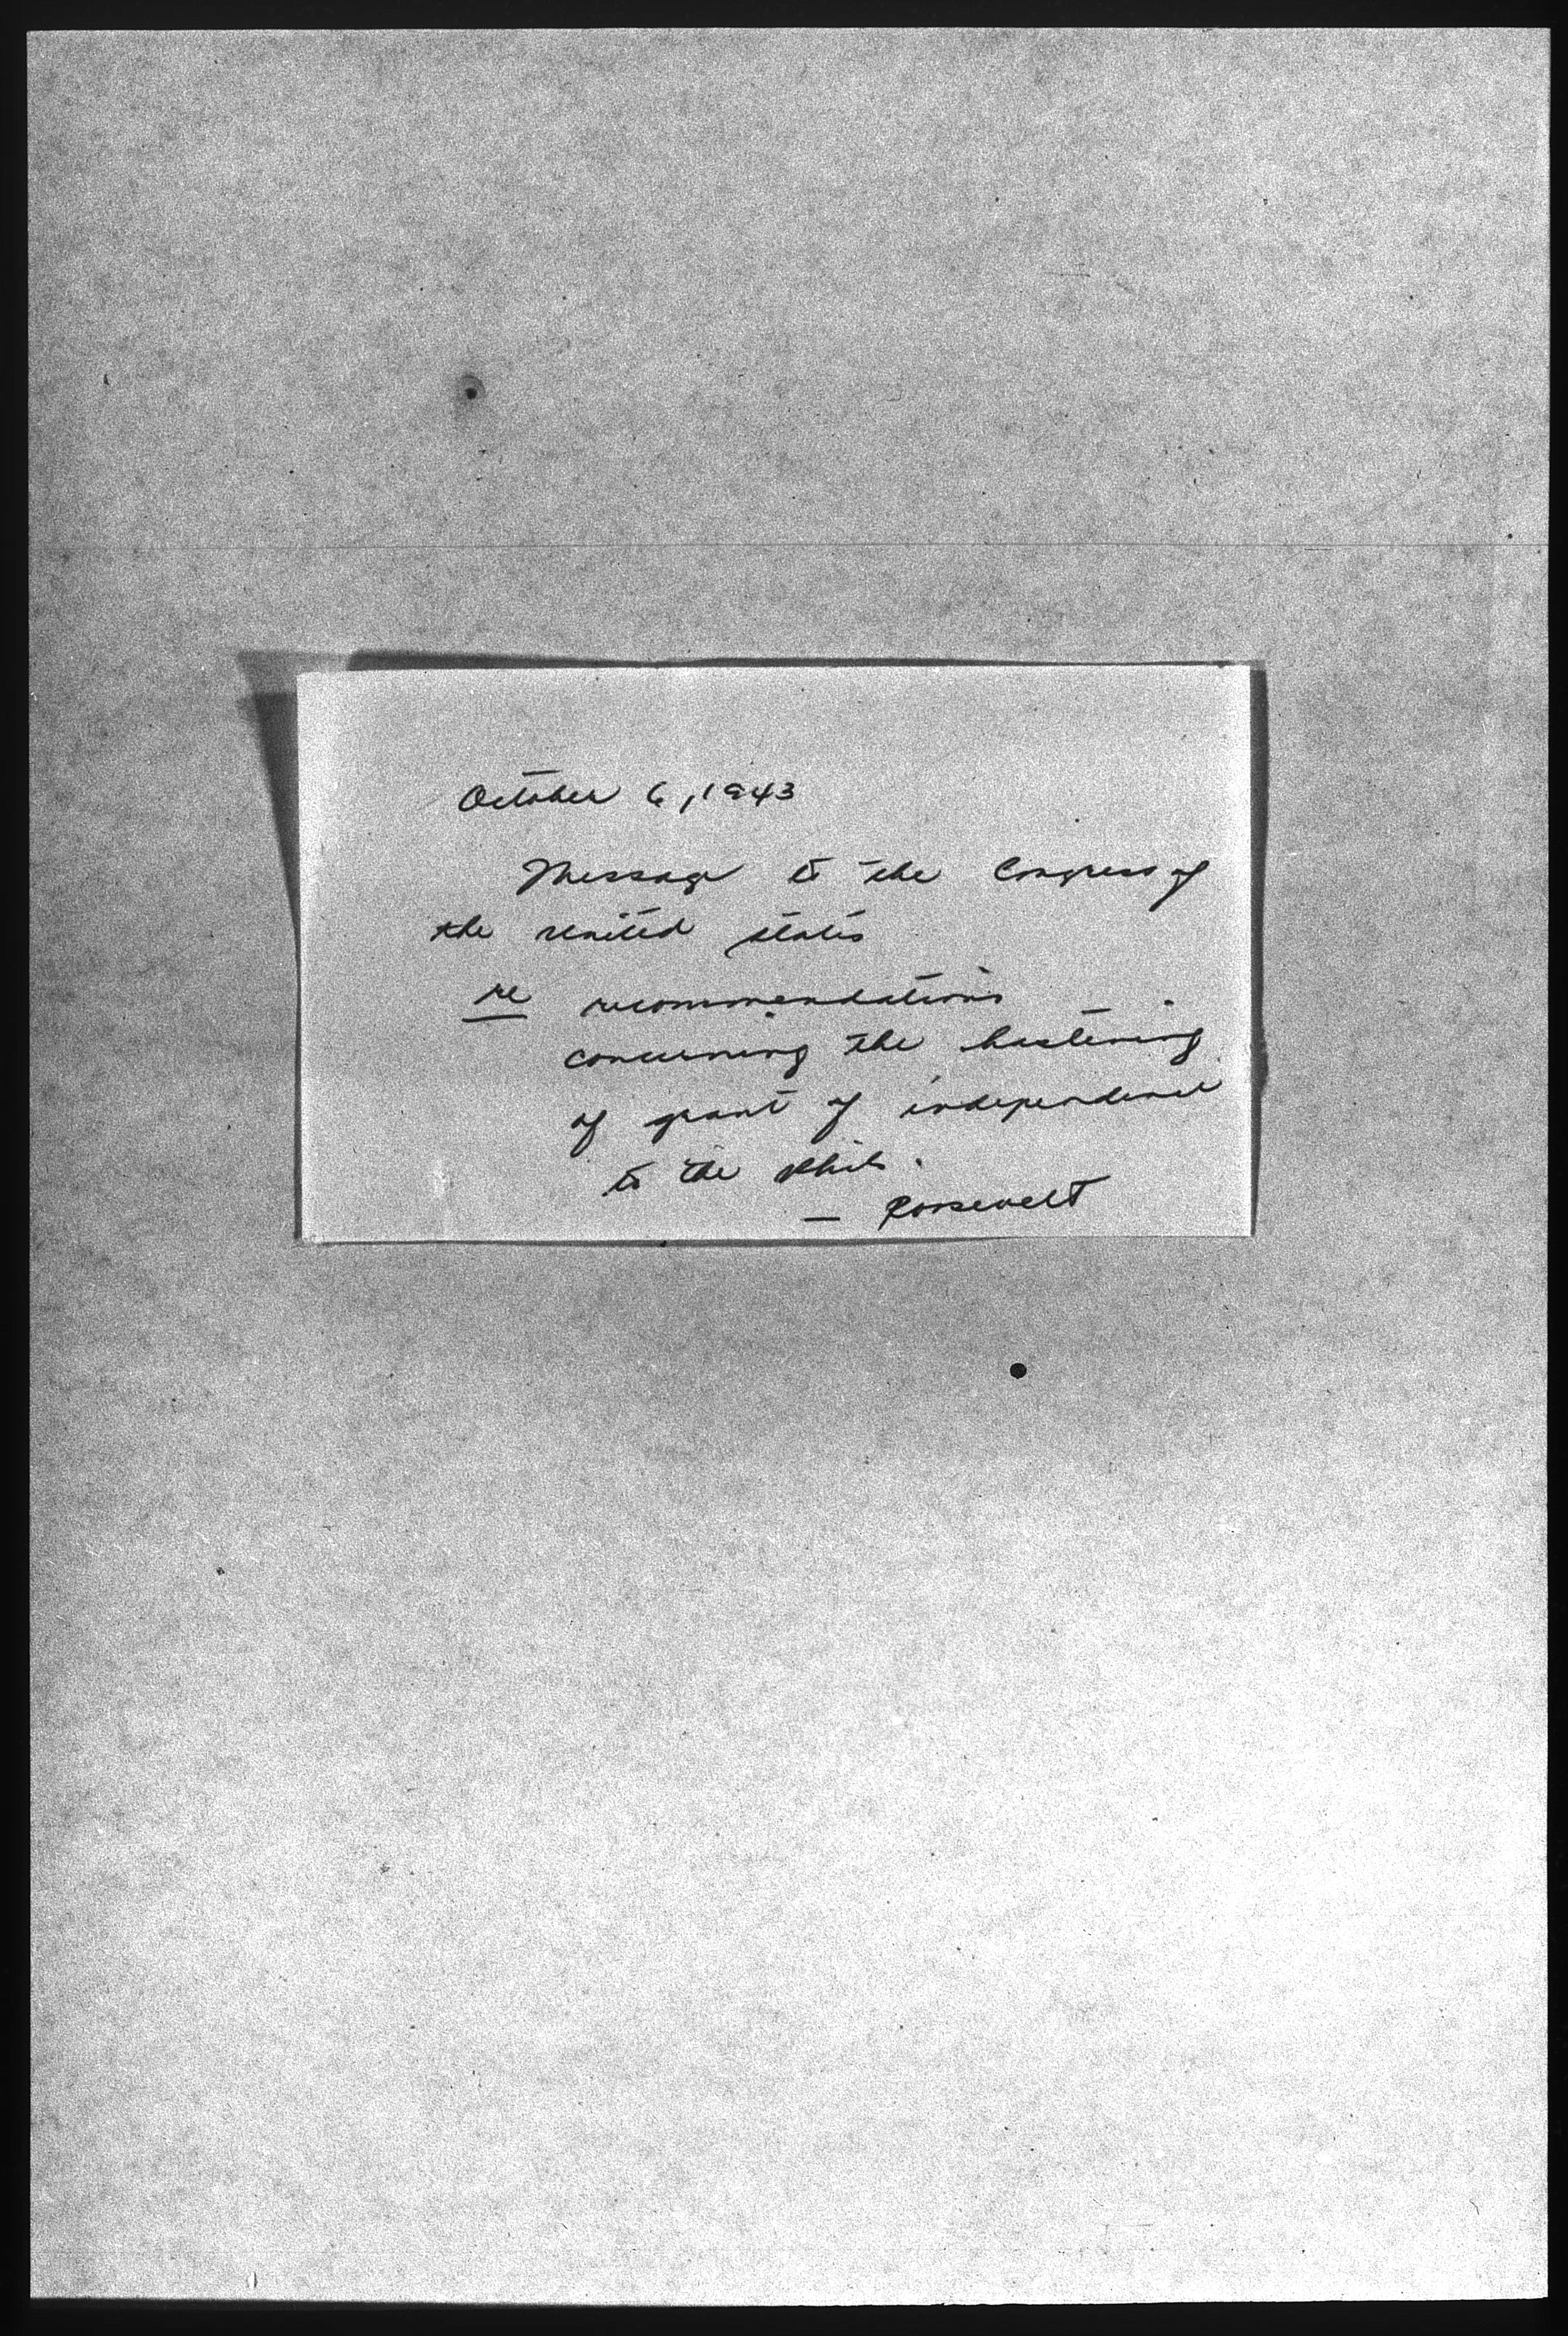 October 6, 1943
Message to the Congress of
the united states
re recommendations
concerning the hastening
of grant of independence
to the Phils.
— Roosevelt